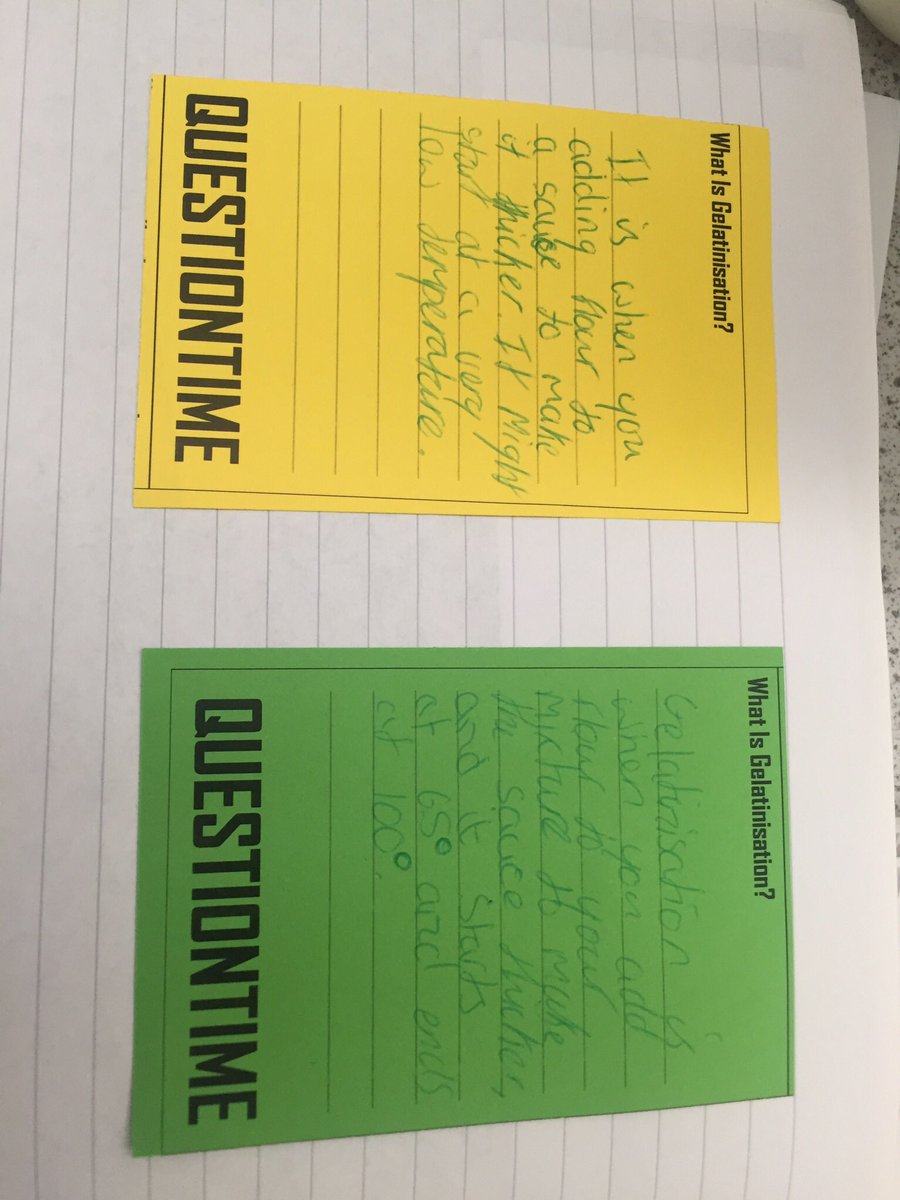 What Is Gelatinisation?
It is when you
adding flour to
a sauce to make
it thicker. It Might
start at a very
low temperature.
QUESTIONTIME
What Is Gelatinisation?
Gelatinisation is
when you add
flour to your
Mixture to make
the sauce thicker,
and it starts
at 65° and ends
at 100°.
QUESTIONTIME